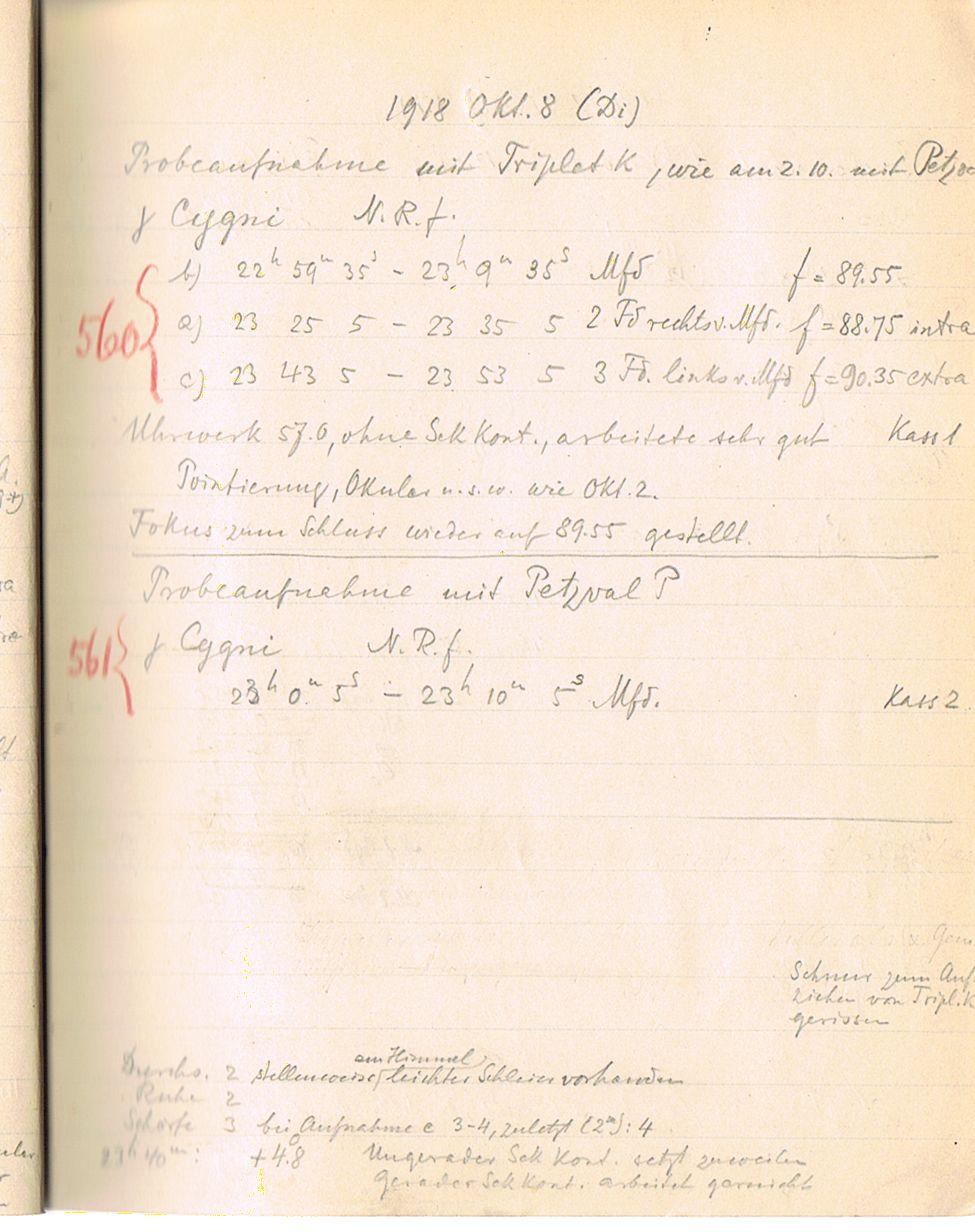 1918 Okt. 8 (Di)
Probeaufnahme mit Triplet K, wie am 2. 10. mit
γ Cygni N.R.f.
560
b) 22h 59m 35s - 23h 9m 35s Mfd f = 89.55
a) 23 25 5 - 23 35 5 2 Fd rechts v. Mfd. f = 88.75 intra
c) 23 43 5 - 23 53 5 3 Fd. links v. Mfd f = 90.35 extra
Uhrwerk 57.0, ohne Sek Kont., arbeitete sehr gut Kass 1
Pointierung, Okular u.s.w. wie Okt. 2.
Fokus zum Schluss wieder auf 89.55 gestellt.
Probeaufnahme mit Petzval P
561
γ Cygni N.R.f.
23h 0m 5s - 23h 10m 5s Mfd. Kass 2
Schnur zum Auf
ziehen von Tripl. K
gerissen
am Himmel
Durchs. 2 stellenweise leichter Schleier vorhanden
Ruhe 2
Schärfe 3 bei Aufnahme c 3-4, zuletzt (2m): 4
23h 40m: +4.8 Ungerader Sek Kont. setzt zuweilen
Gerader Sek Kont. arbeitet garnicht